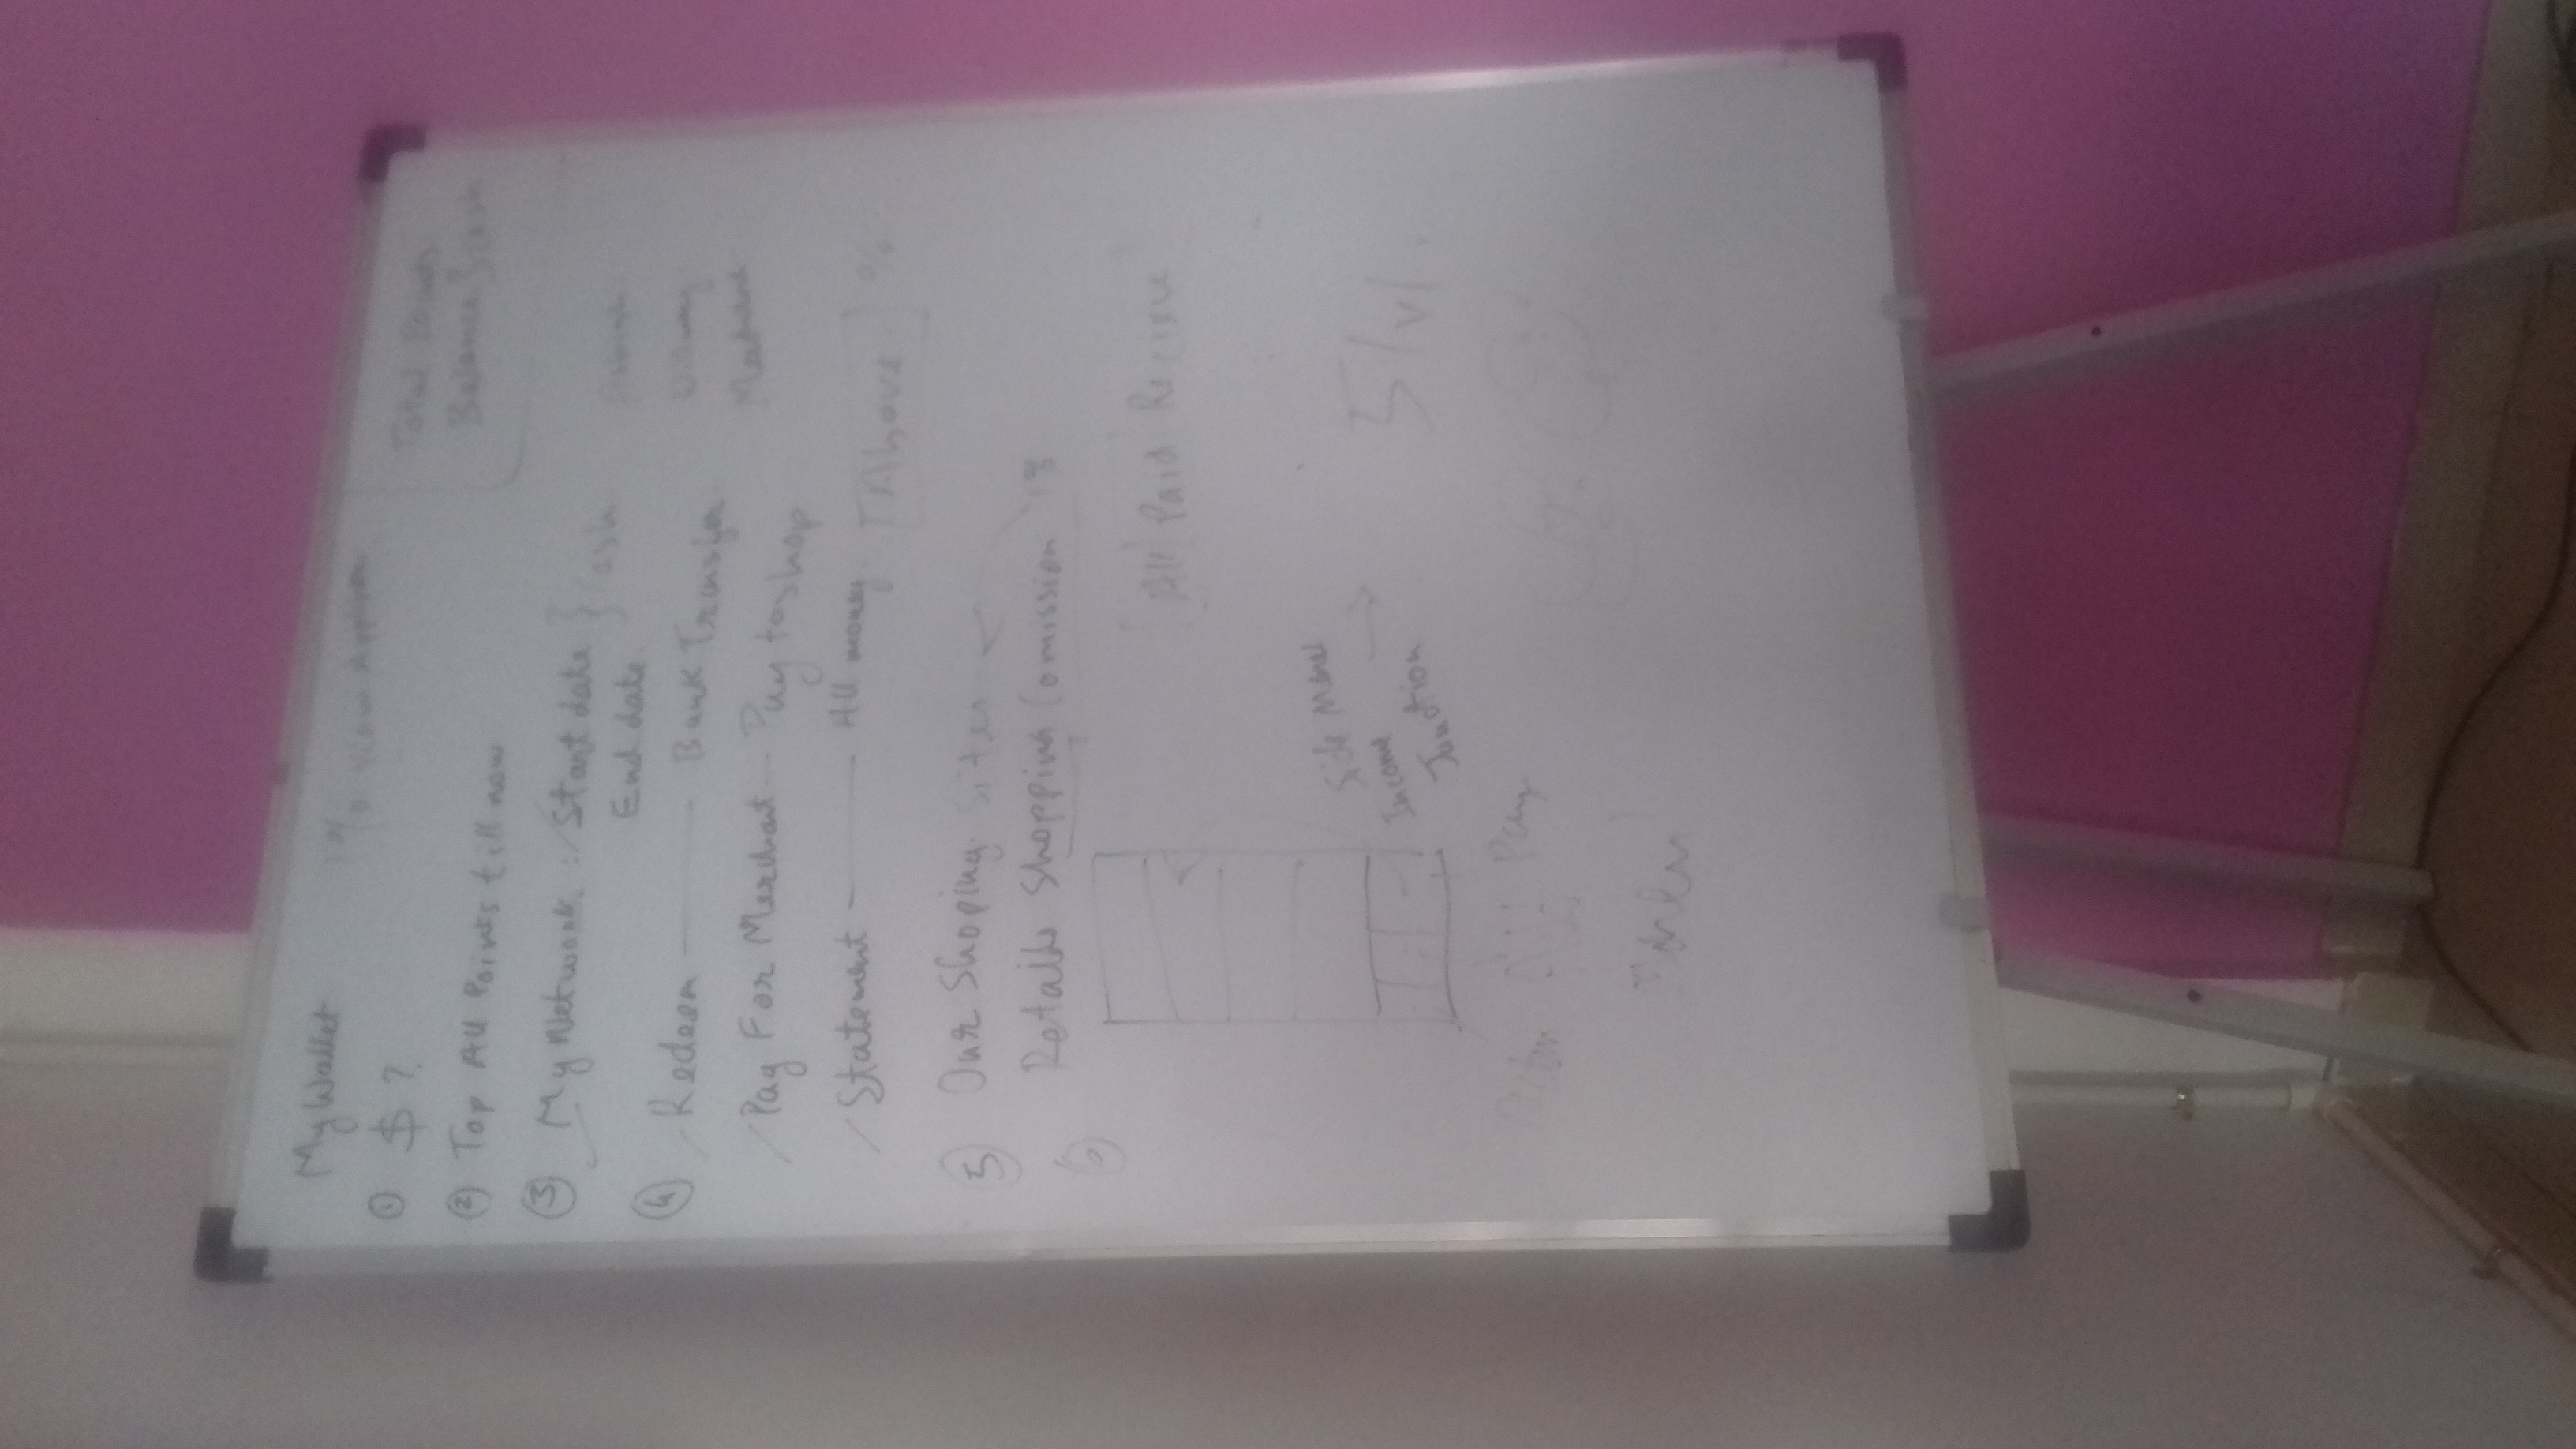 My Wallet
Total Points
① $ ?
Balance } cash
② Top All Points till now
③ My Network : Start date } cash
End date
④ Redeem — Bank Transfer
Pay For Merchant -- Pay to shop
Statement — All money [Above] %
5 Our Shoping Sites
Retails Shopping Comission %
6
All Paid Recieve
Side Menu
Income
Junction
5 lvl.
Pay